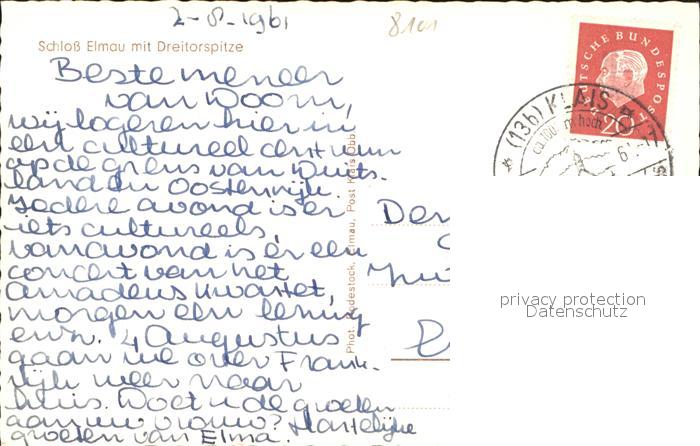 2-8-1961
8101
Schloß Elmau mit Dreitorspitze
Beste meneer
van Woom,
wij logeren hier in
een cultureel centrum
op de grens van Duits-
land en Oostenrijk.
Iedere avond is er
iets cultureels,
vanavond is er een
concert van het
Amadeus kwartet,
morgen een lezing
enz. 4 Augustus
gaan we over Frank-
rijk weer naar
huis. Doet u de groeten
aan uw vrouw? Hartelijke
groeten van Elma.
Elmau. Post Klais (Obb.)
Phot.
DEUTSCHE BUNDESPOST
20
(13b) KLAIS
ca. 1000 m hoch
Den
privacy protection
Datenschutz